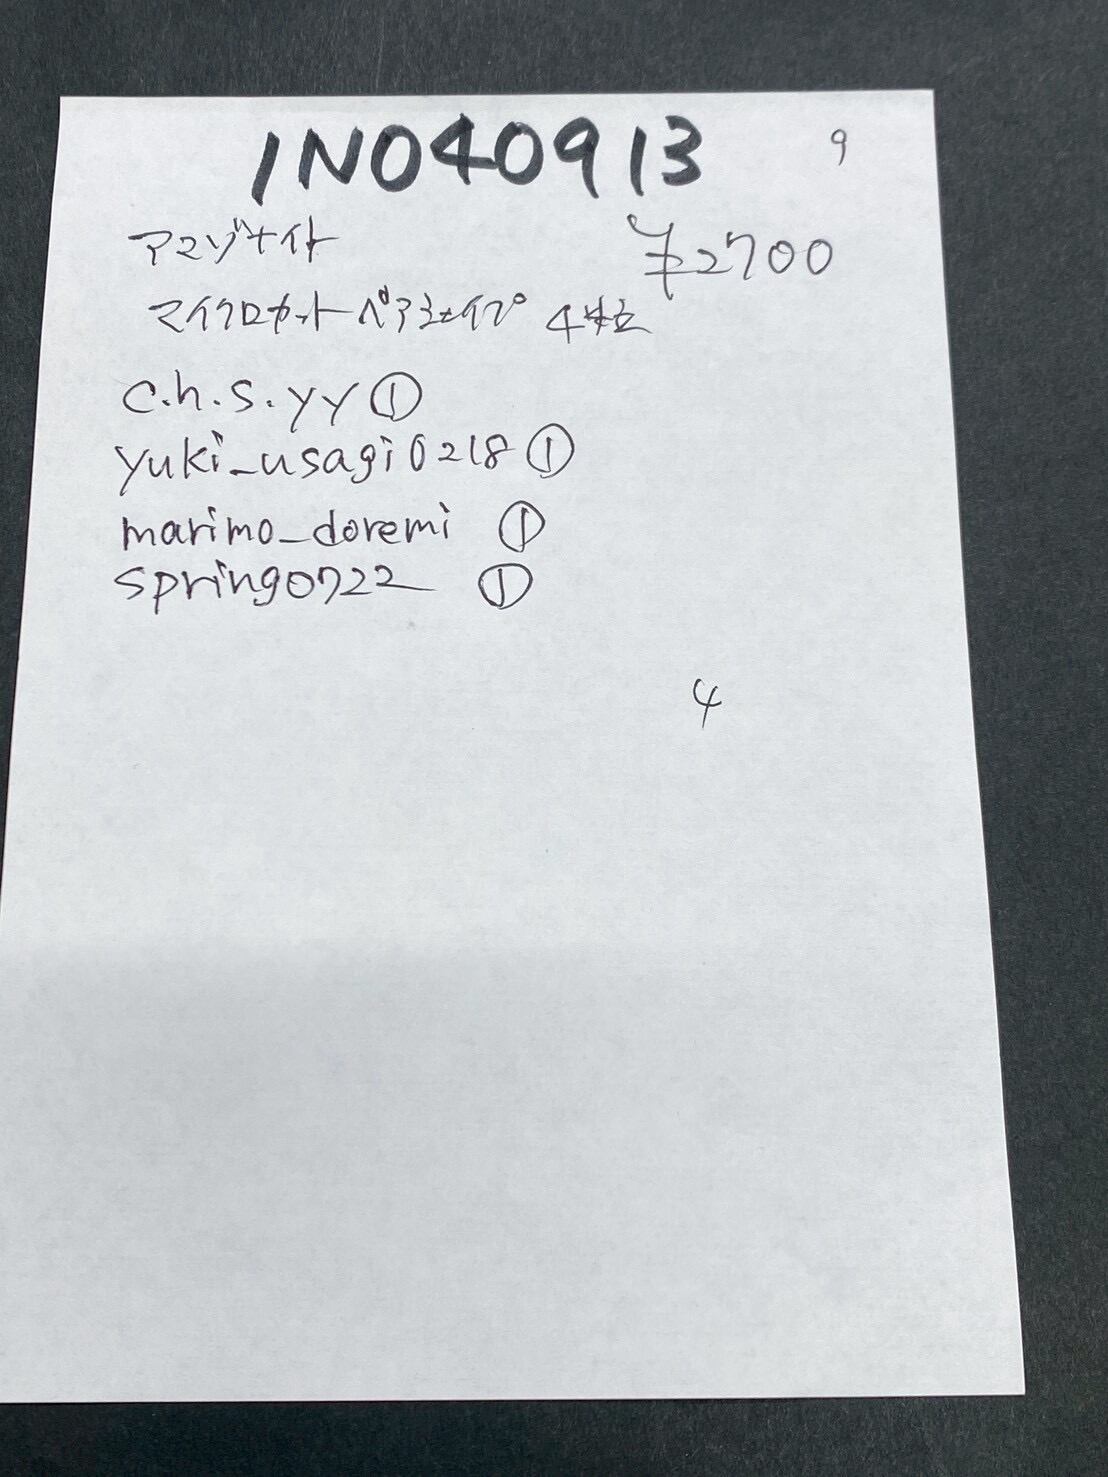 1N040913 9
アマゾナイト ¥2700
マイクロカットペアシェイプ 4粒
c.h.s.yy ①
yuki_usagi0218 ①
marimo_doremi ①
spring0722 ①
4